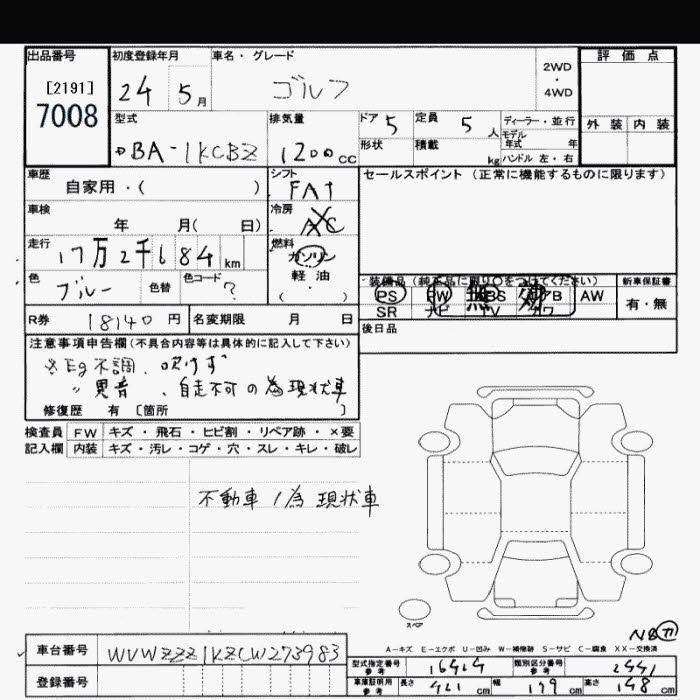 出品番号 初度登録年月 車名・グレード 2WD・4WD 評価点
[2191] 24 5月 ゴルフ
7008
型式 排気量 ドア 5 定員 5人 ディーラー・並行 外装 内装
BA-1KCBZ 1200cc 形状 積載 kg モデル年式 年
ハンドル 左・右
車歴 シフト セールスポイント(正常に機能するものに限ります)
自家用・( ) FAT
車検 冷房
年 月( 日) AC
走行 17万2千684km 燃料
ガソリン
軽・油
( )
色 ブルー 色替 色コード ?
装備品(純正品に限り○をつけてください) 新車保証書
PS PW ABS AB AW 有・無
無効
SR ナビ TV カワ
R券 18140円 名変期限 月 日 後日品
注意事項申告欄(不具合内容等は具体的に記入して下さい)
※Eg不調、吹けず
〃異音、自走不可の為現状車
修復歴 有 [箇所 ]
検査員 FW キズ・飛石・ヒビ割・リペア跡・×要
記入欄 内装 キズ・汚レ・コゲ・穴・スレ・キレ・破レ
不動車ノ為 現状車
スペア
N8
A-キズ E-エクボ U-凹み W-補修跡 S-サビ C-腐食 XX-交換済
車台番号 WVWZZZ1KZCW273983 型式指定番号参考 16414 類別区分番号参考 2441
登録番号 車庫証明用参考 長さ 421cm 幅 179cm 高さ 148cm